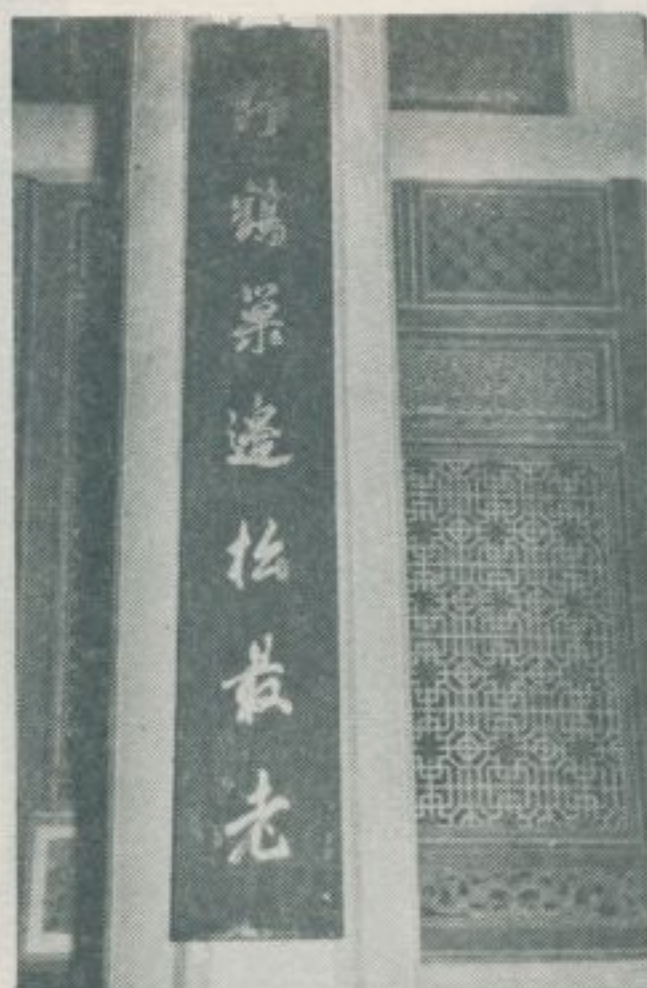 野鶴巢邊松最老